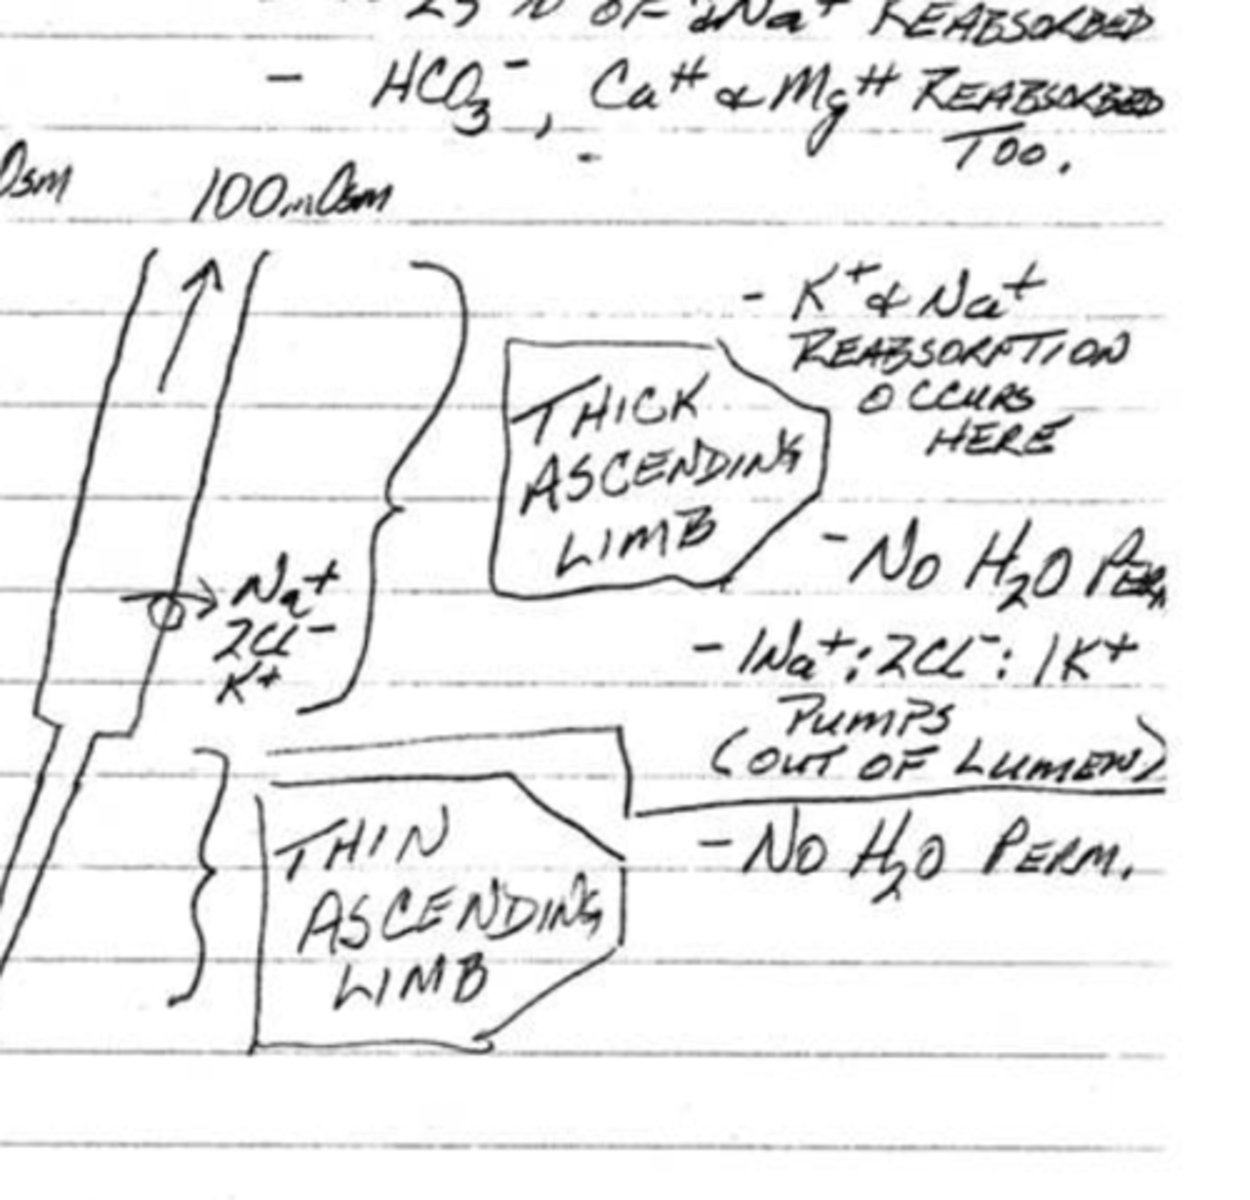 25% OF Na⁺ REABSORBED
- HCO₃⁻, Ca⁺⁺ & Mg⁺⁺ REABSORBED
TOO.
Osm 100mOsm
- K⁺ & Na⁺
REABSORPTION
OCCURS
HERE
THICK
ASCENDING
LIMB
- NO H₂O PERM
Na⁺
2Cl⁻
K⁺
- 1Na⁺:2Cl⁻:1K⁺
PUMPS
(OUT OF LUMEN)
- NO H₂O PERM.
THIN
ASCENDING
LIMB